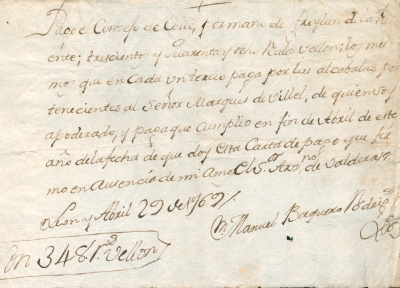 Pago el Conzejo de Coiic, y en mano de Froylan de la Fu
ente; trescientos y quarenta y ocho Reales vellon; los mis
mos que en cada un tercio paga por las alcabalas per
tenecientes al Señor Marques de Villel, de quien soy
apoderado, y paga que cumplio en fin de Abril de este
año de la fecha de que doy esta Carta de pago que fir
mo en Ausencia de mi Amo el Sor. Anto. de Valderas
Leon y Abril 29 de 1769
Manuel Baquero
Son 348 rs. Vellon